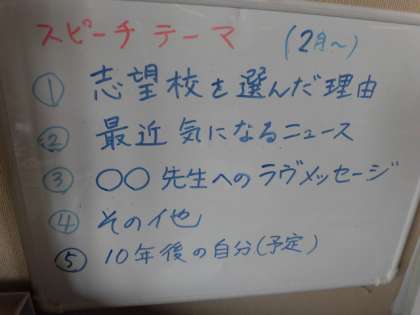 スピーチテーマ (2月～)
① 志望校を選んだ理由
② 最近気になるニュース
③ ○○先生へのラヴメッセージ
④ その他
⑤ 10年後の自分(予定)